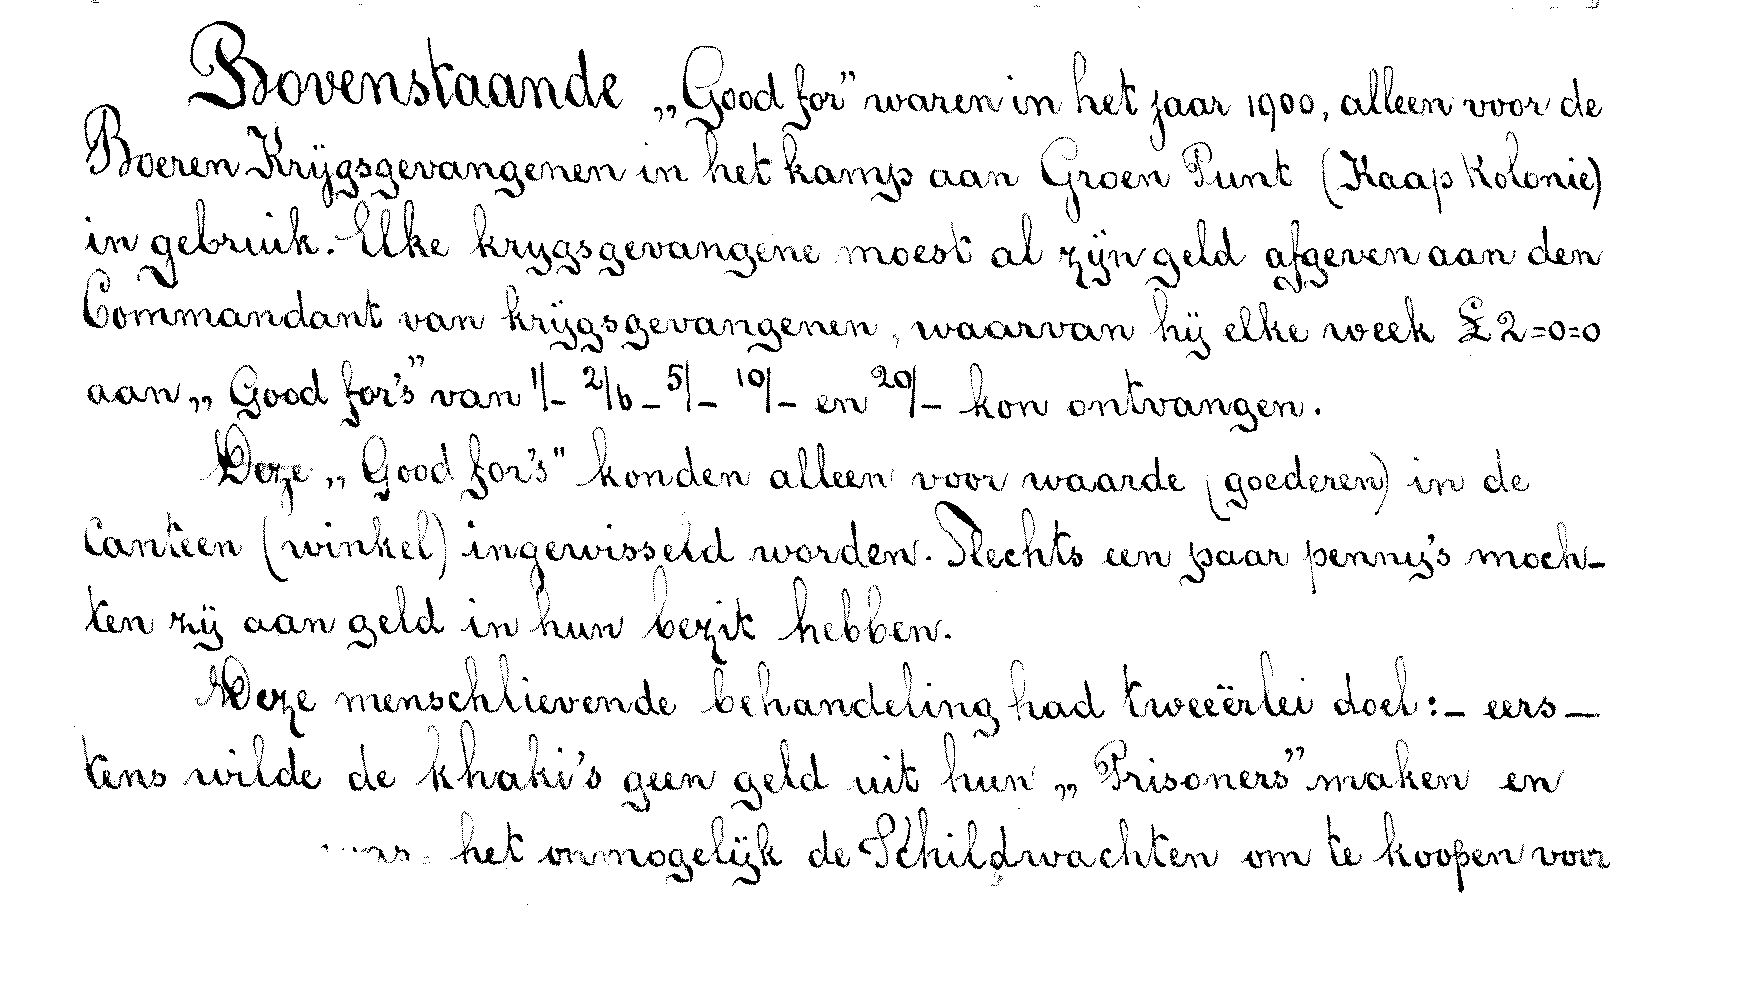 Bovenstaande „Good for” waren in het jaar 1900, alleen voor de
Boeren Krijgsgevangenen in het kamp aan Groen Punt (Kaap Kolonie)
in gebruik. Elke krygsgevangene moest al zijn geld afgeven aan den
Commandant van krijgsgevangenen, waarvan hij elke week £2=0=0
aan „Good for's” van 1/- 2/6 - 5/- 10/- en 20/- kon ontvangen.
Deze „Good for's" konden alleen voor waarde (goederen) in de
Canteen (winkel) ingewisseld worden. Slechts een paar penny's moch-
ten zij aan geld in hun bezit hebben.
Deze menschlievende behandeling had tweeërlei doel:- eers-
tens wilde de khaki's geen geld uit hun „Prisoners” maken en
het onmogelijk de Schildwachten om te koopen voor